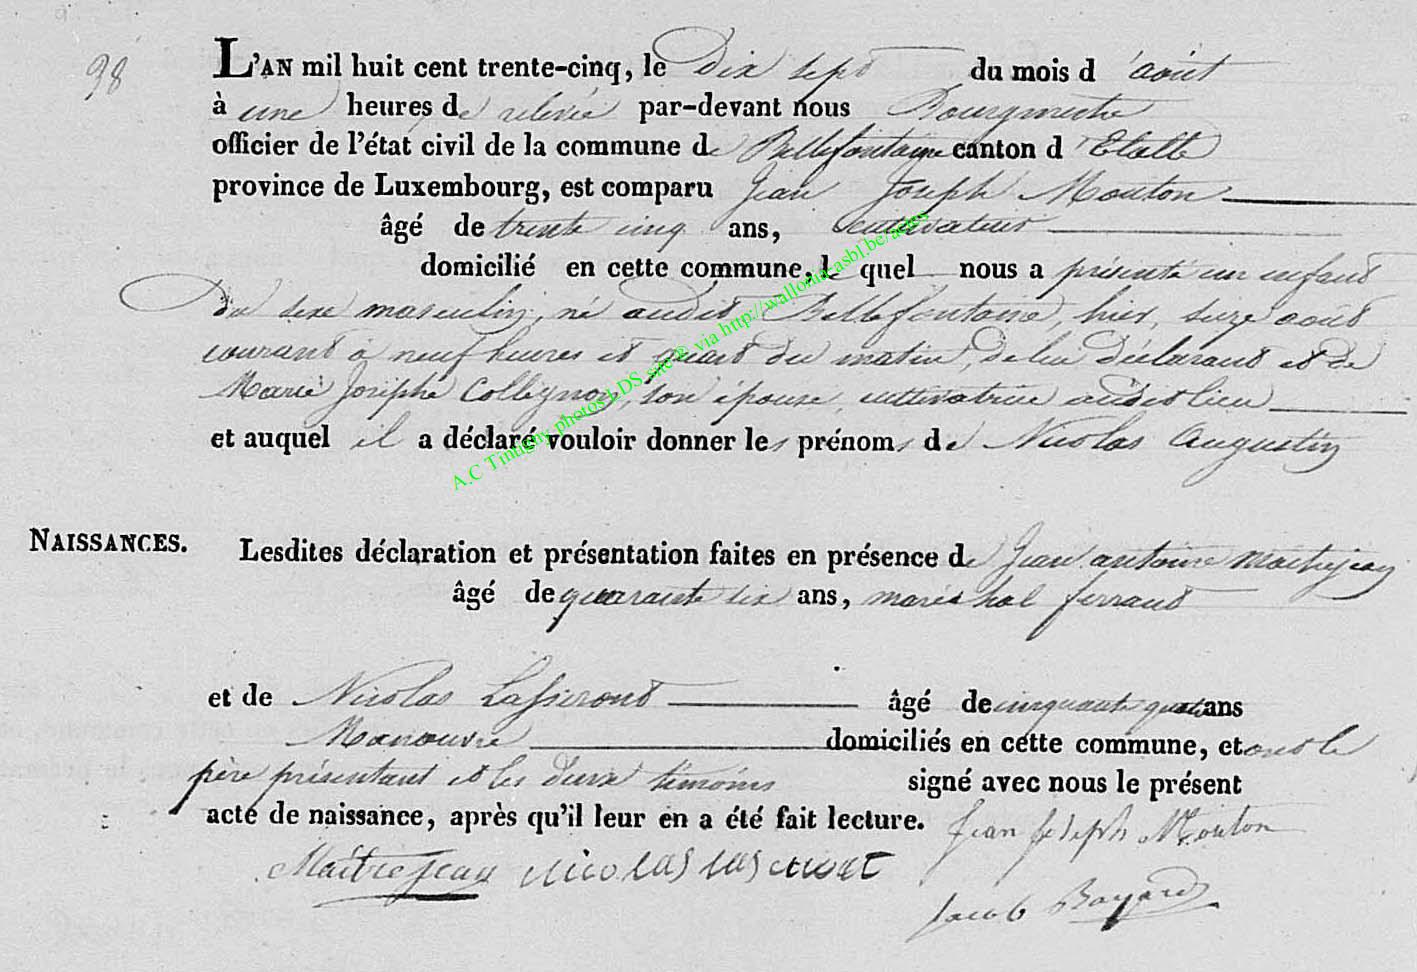 98
L'AN mil huit cent trente-cinq, le Dix sept du mois d'août
à une heures de relevée par-devant nous Bourgmestre
officier de l'état civil de la commune de Bellefontaine canton d'Etalle
province de Luxembourg, est comparu Jean Joseph Mouton
âgé de trente cinq ans, cultivateur
domicilié en cette commune, le quel nous a présenté un enfant
du sexe masculin, né audit Bellefontaine, hier, seize août
courant à neuf heures et quart du matin, de lui déclarant et de
Marie Josephe Collignon, son épouse, cultivatrice audit lieu
et auquel il a déclaré vouloir donner les prénoms de Nicolas Augustin
NAISSANCES.
Lesdites déclaration et présentation faites en présence de Jean antoine Maitrejean
âgé de quarante six ans, maréchal ferrant
et de Nicolas Lassieront âgé de cinquante quatre ans
Manouvre domiciliés en cette commune, et ont le
père présentant et les deux témoins signé avec nous le présent
acte de naissance, après qu'il leur en a été fait lecture.
Jean Joseph Mouton
Maitrejean Nicolas
Jacob Bayard
A.C Tintigny photos LDS site © via http://wallonia-asbl.be/actes